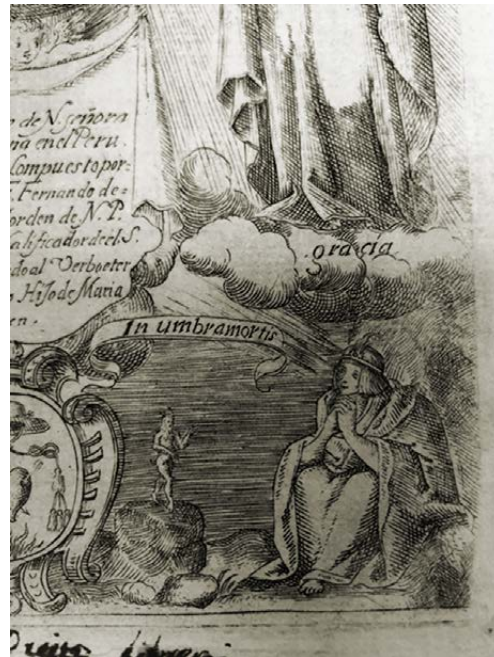 de N. señora
na en el Peru.
Compuesto por:
Fernando de=
orden de N. P.
alificador del S.
do al Verbo eter
HiJo de Maria
en.
gracia
In umbra mortis